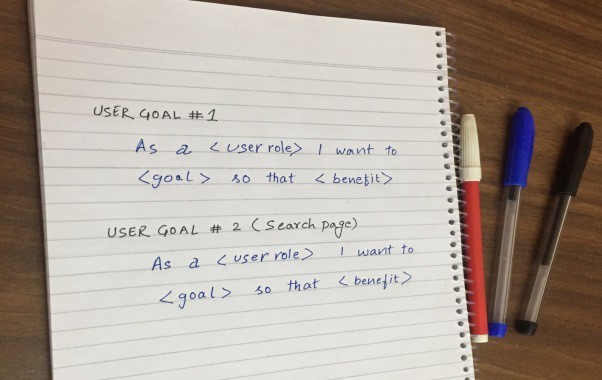 USER GOAL #1
As a <user role> I want to
<goal> so that <benefit>
USER GOAL # 2 (Search page)
As a <user role> I want to
<goal> so that <benefit>